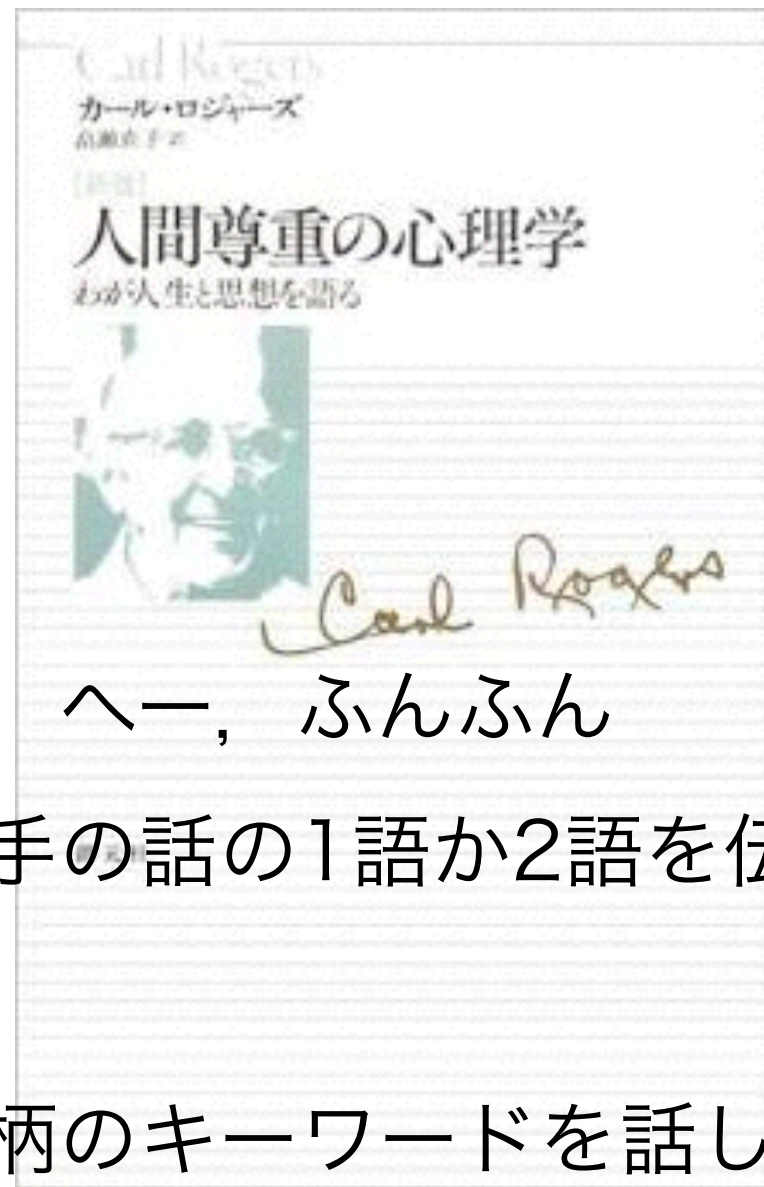 Carl Rogers
カール・ロジャーズ
畠瀬直子 訳
[新版]
人間尊重の心理学
わが人生と思想を語る
Carl Rogers
へー, ふんふん
手の話の1語か2語を伝
柄のキーワードを話し